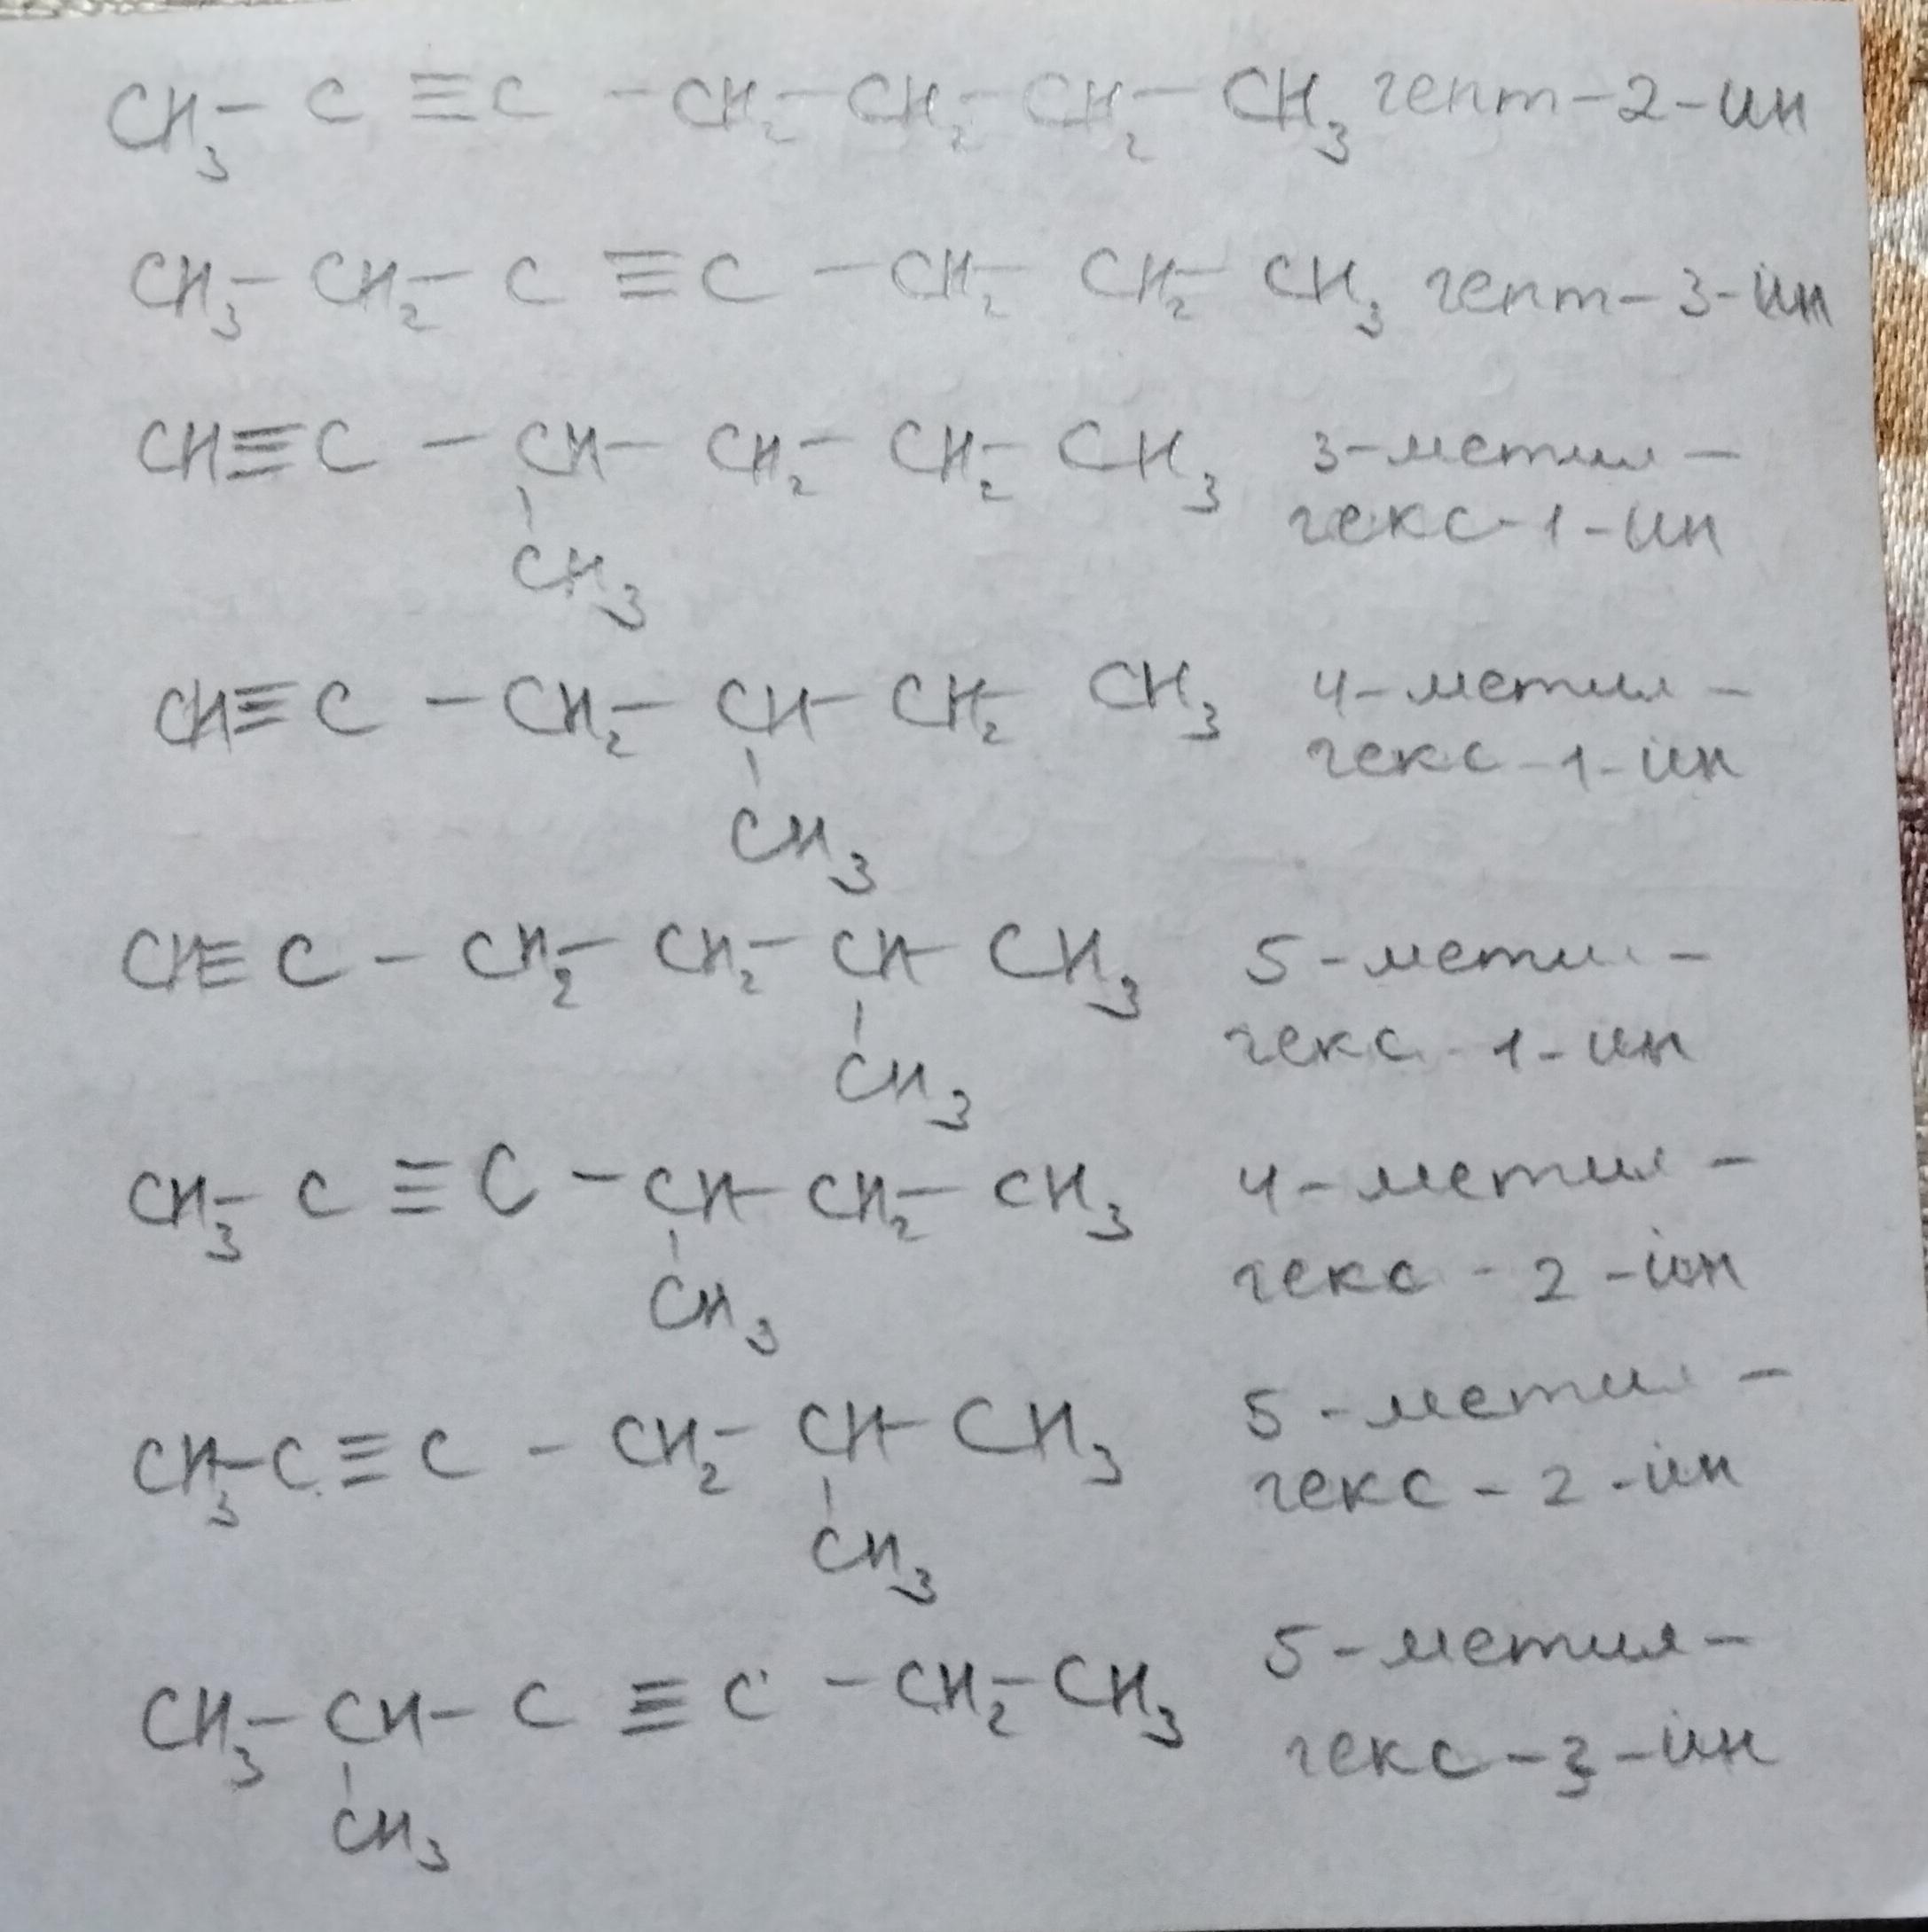 CH₃ – C ≡ C – CH₂ – CH₂ – CH₂ – CH₃ гепт-2-ин
CH₃ – CH₂ – C ≡ C – CH₂ – CH₂ – CH₃ гепт-3-ин
CH ≡ C – CH – CH₂ – CH₂ – CH₃ 3-метил-
гекс-1-ин
CH₃
CH ≡ C – CH₂ – CH – CH₂ – CH₃ 4-метил-
гекс-1-ин
CH₃
CH ≡ C – CH₂ – CH₂ – CH – CH₃ 5-метил-
гекс-1-ин
CH₃
CH₃ – C ≡ C – CH – CH₂ – CH₃ 4-метил-
гекс-2-ин
CH₃
CH₃ – C ≡ C – CH₂ – CH – CH₃ 5-метил-
гекс-2-ин
CH₃
CH₃ – CH – C ≡ C – CH₂ – CH₃ 5-метил-
гекс-3-ин
CH₃